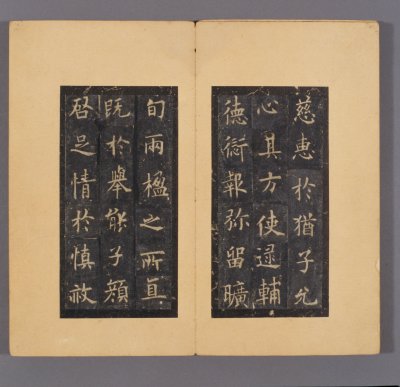 慈惠於猶子允
心其方使逯輔
德衍報弥留曠
旬兩楹之所真
既於舉能子顔
啓足情於慎敛